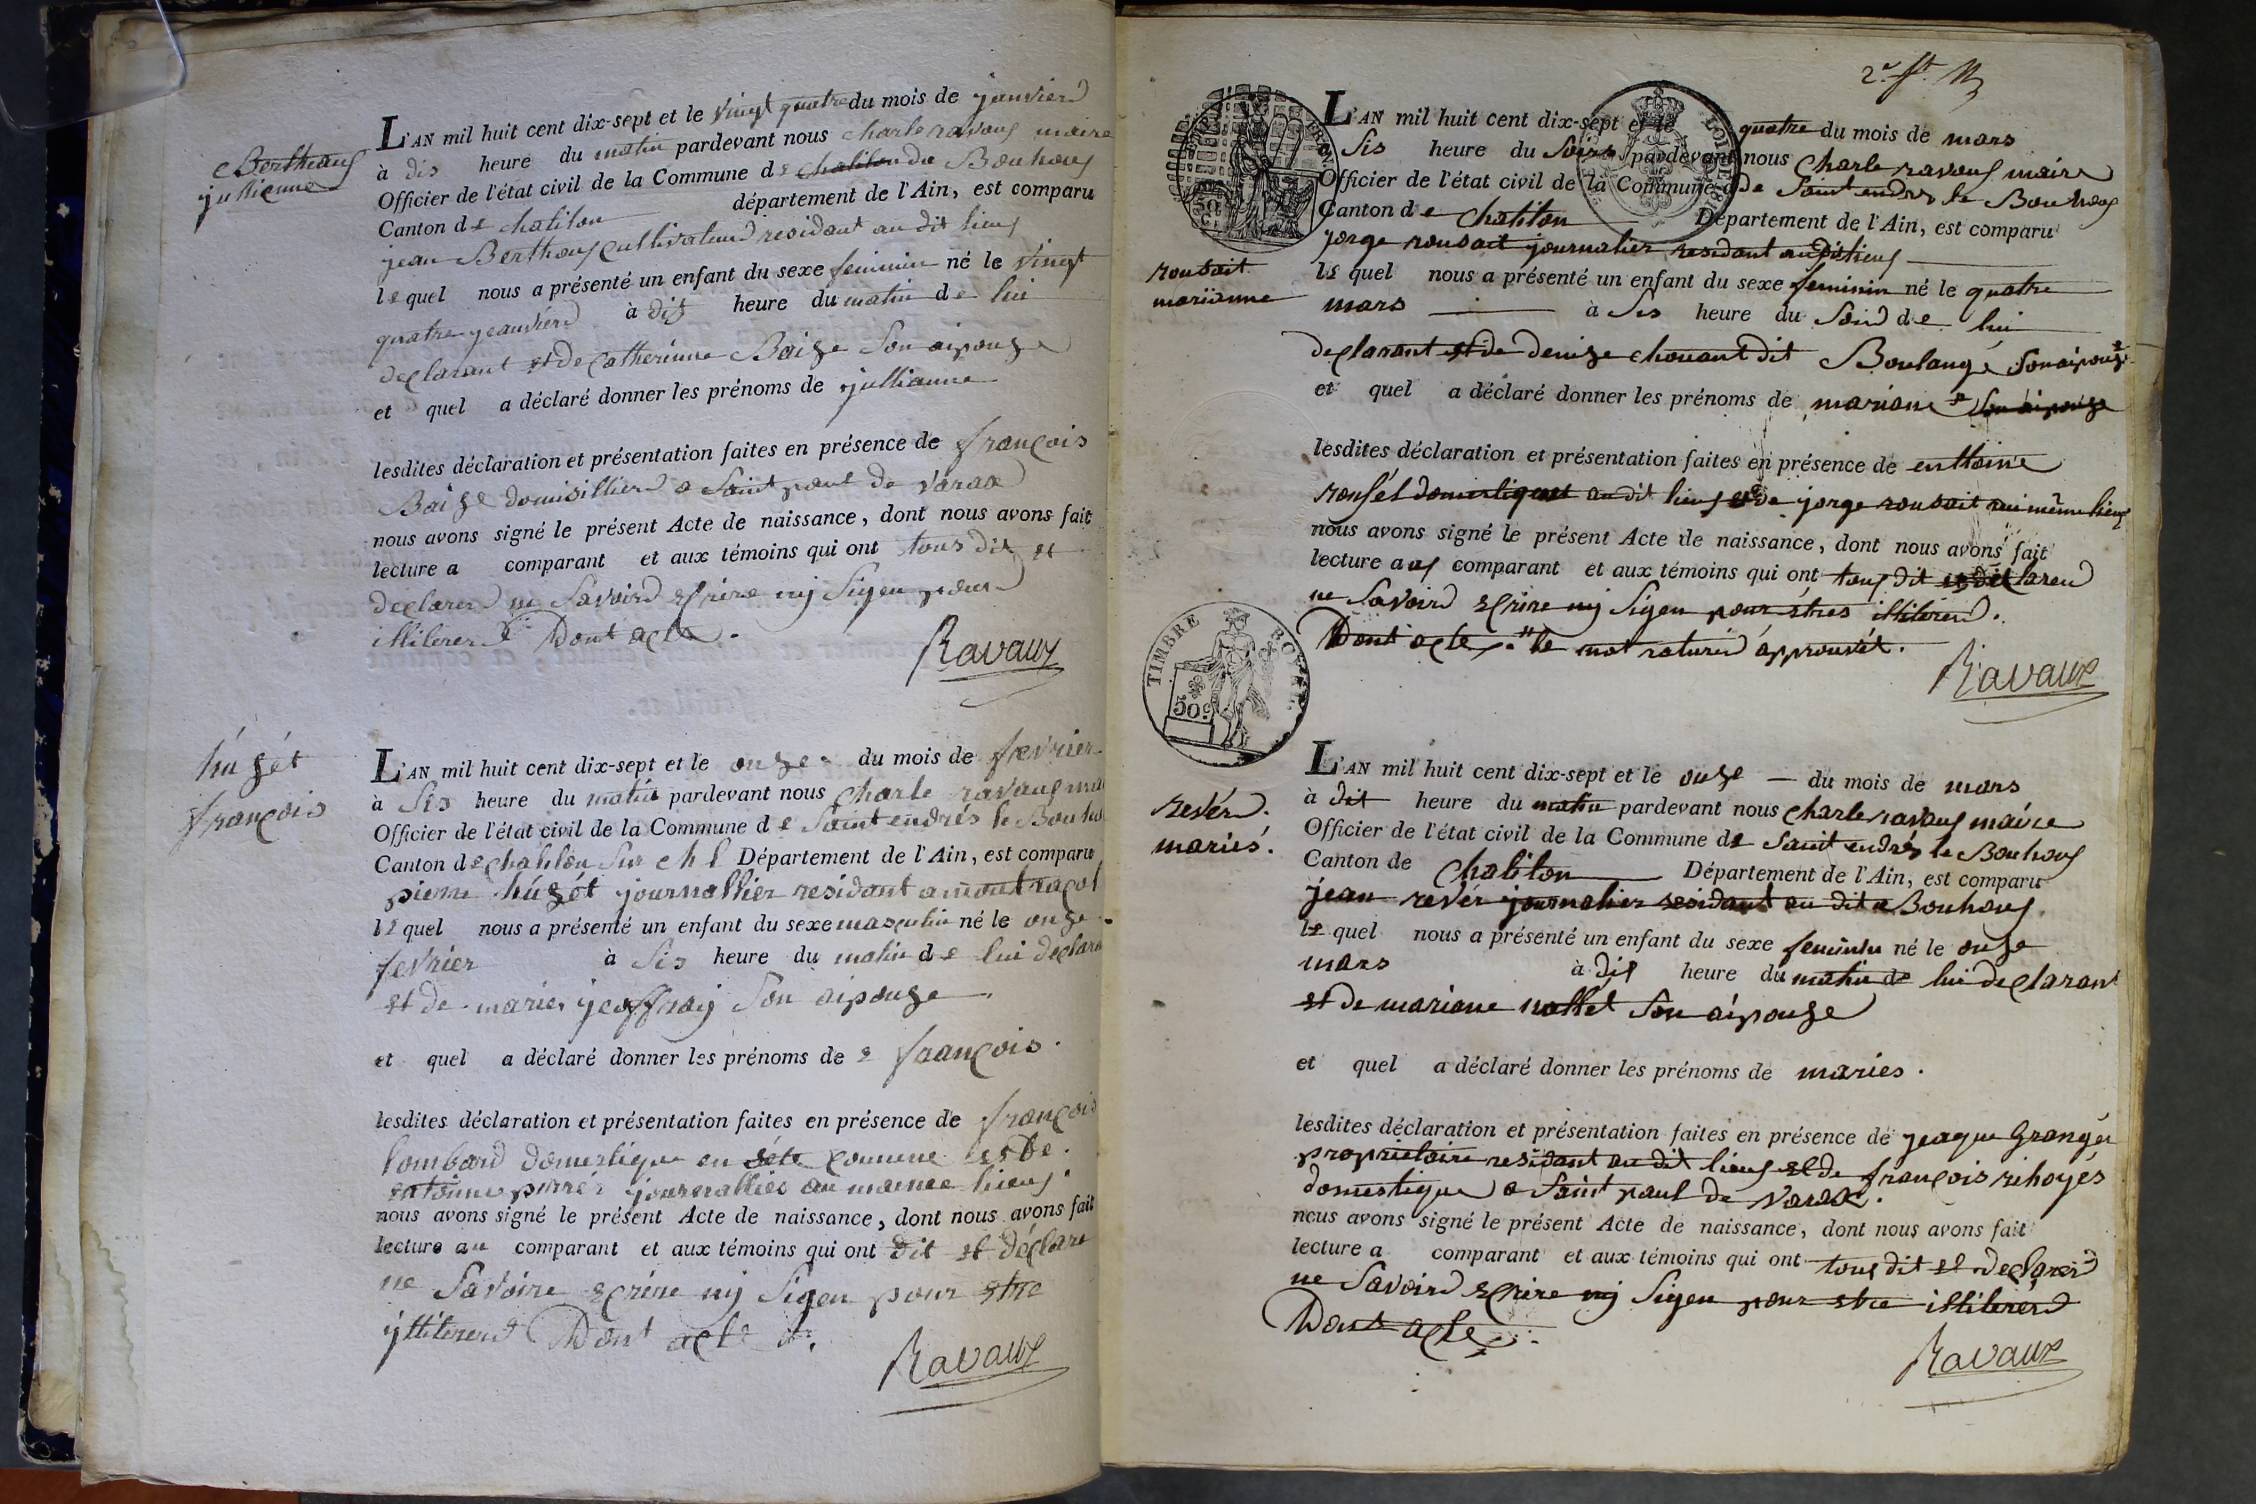 Berthouz
jullienne
L'AN mil huit cent dix-sept et le vingt quatre du mois de janvierd
à dis heure du matin pardevant nous charle ravouz maire
Officier de l'état civil de la Commune de chatilon du Bouhouz
Canton de chatilon département de l'Ain, est comparu
jean Berthouz cultivateurd residant au dit lieuz
lequel nous a présenté un enfant du sexe feminin né le vingt
quatre jeanvierd à dis heure du matin de lui
declarant et de catherinne Baize son aipouze
et quel a déclaré donner les prénoms de jullianne
lesdites déclaration et présentation faites en présence de françois
Baize domisillierd a Saint paul de varax
nous avons signé le présent Acte de naissance, dont nous avons fait
lecture a comparant et aux témoins qui ont tous dit et
declarerd ne Savoird ecrire nij Sigen pour
illiterer Dont acte.
Ravaux
húgét
françois
L'AN mil huit cent dix-sept et le onze du mois de fevrier
à Sis heure du matin pardevant nous charle ravauz
Officier de l'état civil de la Commune de Saint endrés le
Canton de chatilon Sur ch l Département de l'Ain, est comparu
pierre húgét journallier residant a montracol
lequel nous a présenté un enfant du sexe masculin né le onze
fevrier à Sis heure du matin de lui
et de maries jeoffraij Son aipouze
et quel a déclaré donner les prénoms de françois.
lesdites déclaration et présentation faites en présence de françois
lombard domestique en comune
journallier au maime lieuz
nous avons signé le présent Acte de naissance, dont nous avons fait
lecture au comparant et aux témoins qui ont dit et déclare
ne Savoire ecrire nij Sigen pour etre
illiterend Dont acte
Ravaux
L'AN mil huit cent dix-sept et le quatre du mois de mars
à Sis heure du Soird pardevant nous charle ravouz maire
Officier de l'état civil de la Commune de Saint endrés le Bouhouz
Canton de chatilon Département de l'Ain, est comparu
jorge rousait journalier residant au dit lieuz
rousait
mariänne
lequel nous a présenté un enfant du sexe feminin né le quatre
mars à Sis heure du Soird de lui
declarant et de denize chouant dit Boulangé Son aipouze
et quel a déclaré donner les prénoms de mariane Son aipouze
lesdites déclaration et présentation faites en présence de enttoine
rousét domestique audit lieuz et de jorge rousait au même lieuz
nous avons signé le présent Acte de naissance, dont nous avons fait
lecture auz comparant et aux témoins qui ont touz dit et déclarerd
ne Savoird ecrire nij Sigen pour étres illiterend.
Dont acte le mot raturerd approuvét.
Ravaux
TIMBRE ROYAL
50c
L'AN mil huit cent dix-sept et le onze du mois de mars
à dit heure du matin pardevant nous charle ravauz maire
revérd.
mariés.
Officier de l'état civil de la Commune de Saint endrés le Bouhouz
Canton de chatilon Département de l'Ain, est comparu
jean revér journalier residant au dit Bouhouz
lequel nous a présenté un enfant du sexe feminin né le onze
mars à dix heure du matin de lui declarant
et de mariane nallet Son aipouze
et quel a déclaré donner les prénoms de maries.
lesdites déclaration et présentation faites en présence de jeaque Grangér
proprietaire residant au dit lieuz et de françois rihoyés
domestique a Saint paul de varax.
nous avons signé le présent Acte de naissance, dont nous avons fait
lecture a comparant et aux témoins qui ont touz dit et declarerd
ne Savoird ecrire nij Sigen pour etre illiterérd
Dont acte
Ravaux